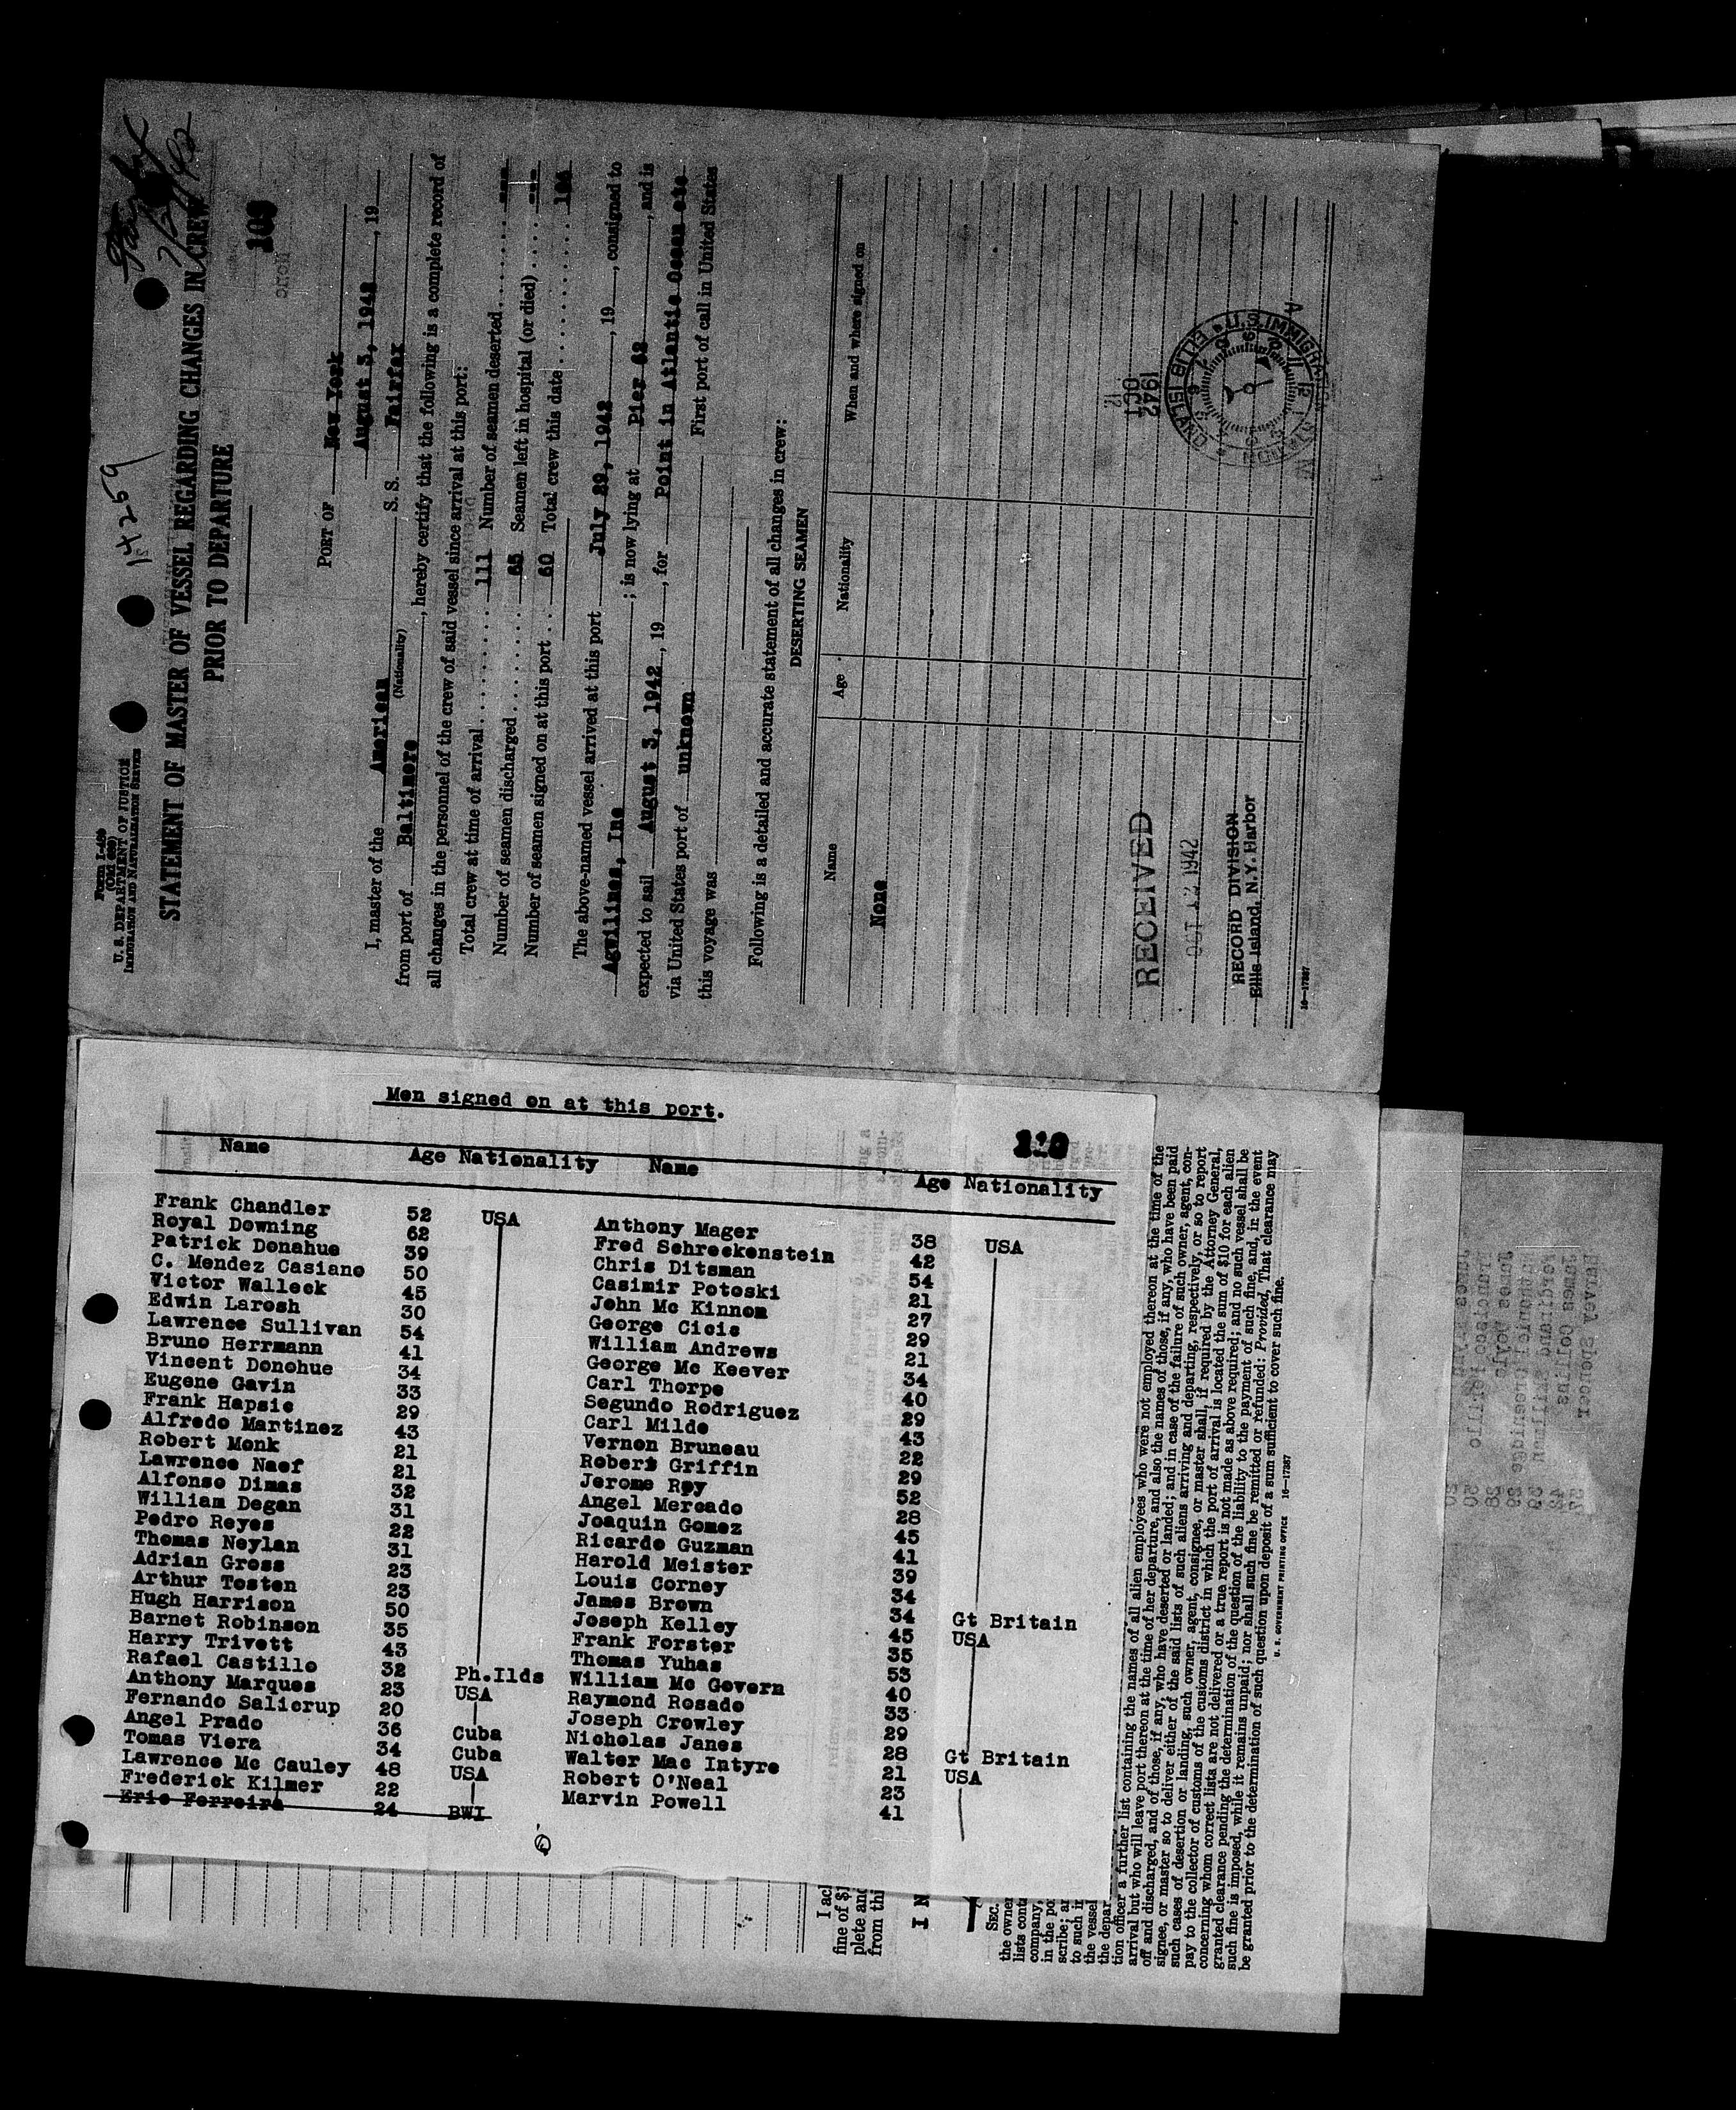 Form I-489
(Old 689)
U. S. DEPARTMENT OF JUSTICE
IMMIGRATION AND NATURALIZATION SERVICE
14259
STATEMENT OF MASTER OF VESSEL REGARDING CHANGES IN CREW
PRIOR TO DEPARTURE
109
PORT OF New York
August 3, 1942, 19
I, master of the American S. S. Fairfax
(Nationality)
from port of Baltimore, hereby certify that the following is a complete record of
all changes in the personnel of the crew of said vessel since arrival at this port:
Total crew at time of arrival 111 Number of seamen deserted ---
Number of seamen discharged 65 Seamen left in hospital (or died) ---
Number of seamen signed on at this port 60 Total crew this date
The above-named vessel arrived at this port July 29, 1942, 19, consigned to
Agwilines, Inc; is now lying at Pier 42, and is
expected to sail August 3, 1942, 19, for Point in Atlantic Ocean etc
via United States port of unknown First port of call in United States
this voyage was
Following is a detailed and accurate statement of all changes in crew:
DESERTING SEAMEN
Name Age Nationality When and where signed on
None
RECEIVED
OCT 12 1942
RECORD DIVISION
Ellis Island, N.Y. Harbor
1942
OCT
12
ELLIS ISLAND U.S. IMMIGRATION
16—17387
Men signed on at this port.
Name Age Nationality Name Age Nationality
Frank Chandler 52 USA Anthony Mager 38 USA
Royal Downing 62 Fred Schreckenstein 42
Patrick Donahue 39 Chris Ditsman 54
C. Mendez Casiano 50 Casimir Potoski 21
Victor Walleck 45 John Mc Kinnon 27
Edwin Larosh 30 George Cicic 29
Lawrence Sullivan 54 William Andrews 21
Bruno Herrmann 41 George Mc Keever 34
Vincent Donohue 34 Carl Thorpe 40
Eugene Gavin 33 Segundo Rodriguez 29
Frank Hapsic 29 Carl Milde 43
Alfredo Martinez 43 Vernon Bruneau 22
Robert Monk 21 Robert Griffin 29
Lawrence Naef 21 Jerome Roy 52
Alfonso Dimas 32 Angel Mercado 28
William Degan 31 Joaquin Gomez 45
Pedro Reyes 22 Ricardo Guzman 41
Thomas Neylan 31 Harold Meister 39
Adrian Gross 23 Louis Corney 34
Arthur Tosten 23 James Brown 34 Gt Britain
Hugh Harrison 50 Joseph Kelley 45 USA
Barnet Robinson 35 Frank Forster 35
Harry Trivett 43 Thomas Yuhas 53
Rafael Castillo 32 Ph.Ilds William Mc Govern 40
Anthony Marques 23 USA Raymond Rosado 33
Fernando Salicrup 20 Joseph Crowley 29
Angel Prado 36 Cuba Nicholas Janes 28 Gt Britain
Tomas Viera 34 Cuba Walter Mac Intyre 21 USA
Lawrence Mc Cauley 48 USA Robert O'Neal 23
Frederick Kilmer 22 Marvin Powell 41
Eric Ferreira 24 BWI
I ac
fine of $1
plete and
from thi
I N
SEC.
the owner
lists conta
company,
in the po
scribe; a
to such i
the vessel
the depar
tion officer a further list containing the names of all alien employees who were not employed thereon at the time of the
arrival but who will leave port thereon at the time of her departure, and also the names of those, if any, who have been paid
off and discharged, and of those, if any, who have deserted or landed; and in case of the failure of such owner, agent, con-
signee, or master so to deliver either of the said lists of such aliens arriving and departing, respectively, or so to report
such cases of desertion or landing, such owner, agent, consignee, or master shall, if required by the Attorney General,
pay to the collector of customs of the customs district in which the port of arrival is located the sum of $10 for each alien
concerning whom correct lists are not delivered or a true report is not made as above required; and no such vessel shall be
granted clearance pending the determination of the question of the liability to the payment of such fine, and, in the event
such fine is imposed, while it remains unpaid; nor shall such fine be remitted or refunded: Provided, That clearance may
be granted prior to the determination of such question upon deposit of a sum sufficient to cover such fine.
U. S. GOVERNMENT PRINTING OFFICE 16—17387